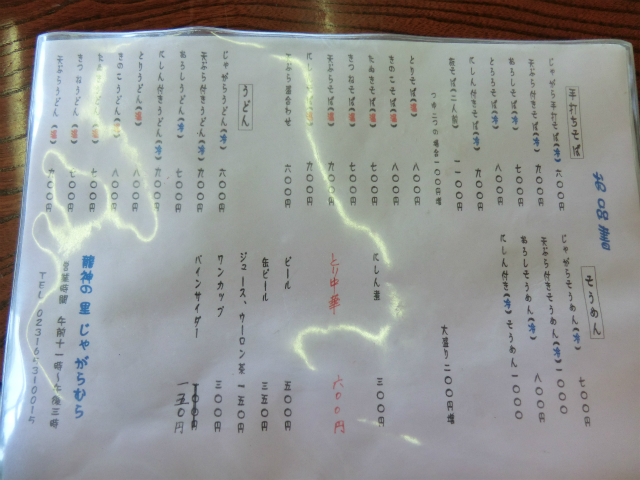 手打ちそば
じゃがら手打そば(冷) 六〇〇円
天ぷら付きそば(冷) 九〇〇円
おろしそば(冷) 七〇〇円
とろろそば(冷) 八〇〇円
にしん付きそば(冷) 九〇〇円
板そば(二人前) 一一〇〇円
つゆ二つの場合一〇〇円増
とりそば(温) 八〇〇円
きのこそば(温) 八〇〇円
たぬきそば(温) 七〇〇円
きつねそば(温) 七〇〇円
天ぷらそば(温) 九〇〇円
にしんそば(温) 九〇〇円
天ぷら盛合わせ 六〇〇円
うどん
じゃがらうどん(冷) 六〇〇円
天ぷら付きうどん(冷) 九〇〇円
おろしうどん(冷) 七〇〇円
にしん付きうどん(冷) 九〇〇円
とりうどん(温) 八〇〇円
きのこうどん(温) 八〇〇円
たぬきうどん(温) 七〇〇円
きつねうどん(温) 七〇〇円
天ぷらうどん(温) 九〇〇円
そうめん
じゃがらそうめん(冷) 七〇〇円
天ぷら付きそうめん(冷) 一〇〇〇
おろしそうめん(冷) 八〇〇円
にしん付き(冷)そうめん 一〇〇〇
大盛り二〇〇円増
にしん煮 三〇〇円
とり中華 六〇〇円
ビール 五〇〇円
缶ビール 三五〇円
ジュース、ウーロン茶 一五〇円
ワンカップ 三〇〇円
パインサイダー 一五〇円
龍神の里 じゃがらむら
営業時間 午前十一時〜午後三時
TEL 0231653100115